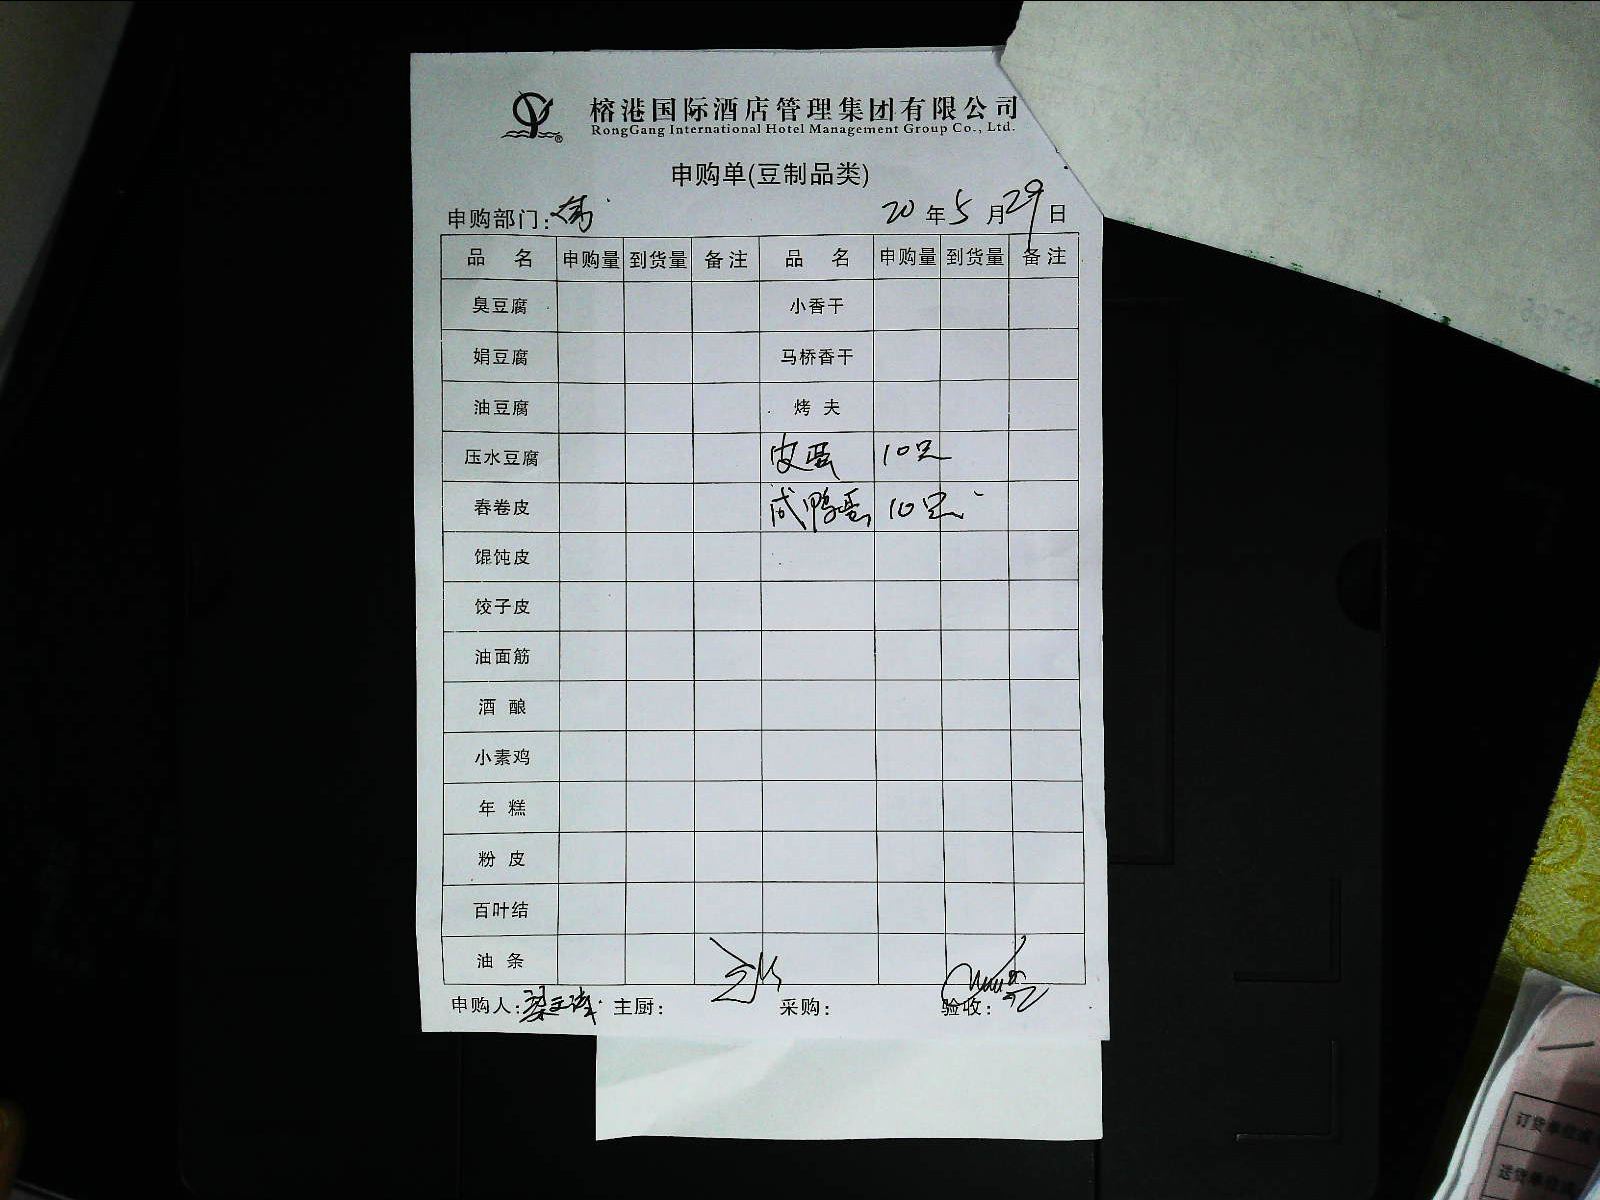 榕港国际酒店管理集团有限公司
RongGang International Hotel Management Group Co., Ltd.
申购单(豆制品类)
申购部门: 20年5月29日
品名 申购量 到货量 备注 品名 申购量 到货量 备注
臭豆腐 小香干
娟豆腐 马桥香干
油豆腐 烤夫
压水豆腐 皮蛋 10只
春卷皮 咸鸭蛋 10只
馄饨皮
饺子皮
油面筋
酒酿
小素鸡
年糕
粉皮
百叶结
油条
申购人: 主厨: 采购: 验收: